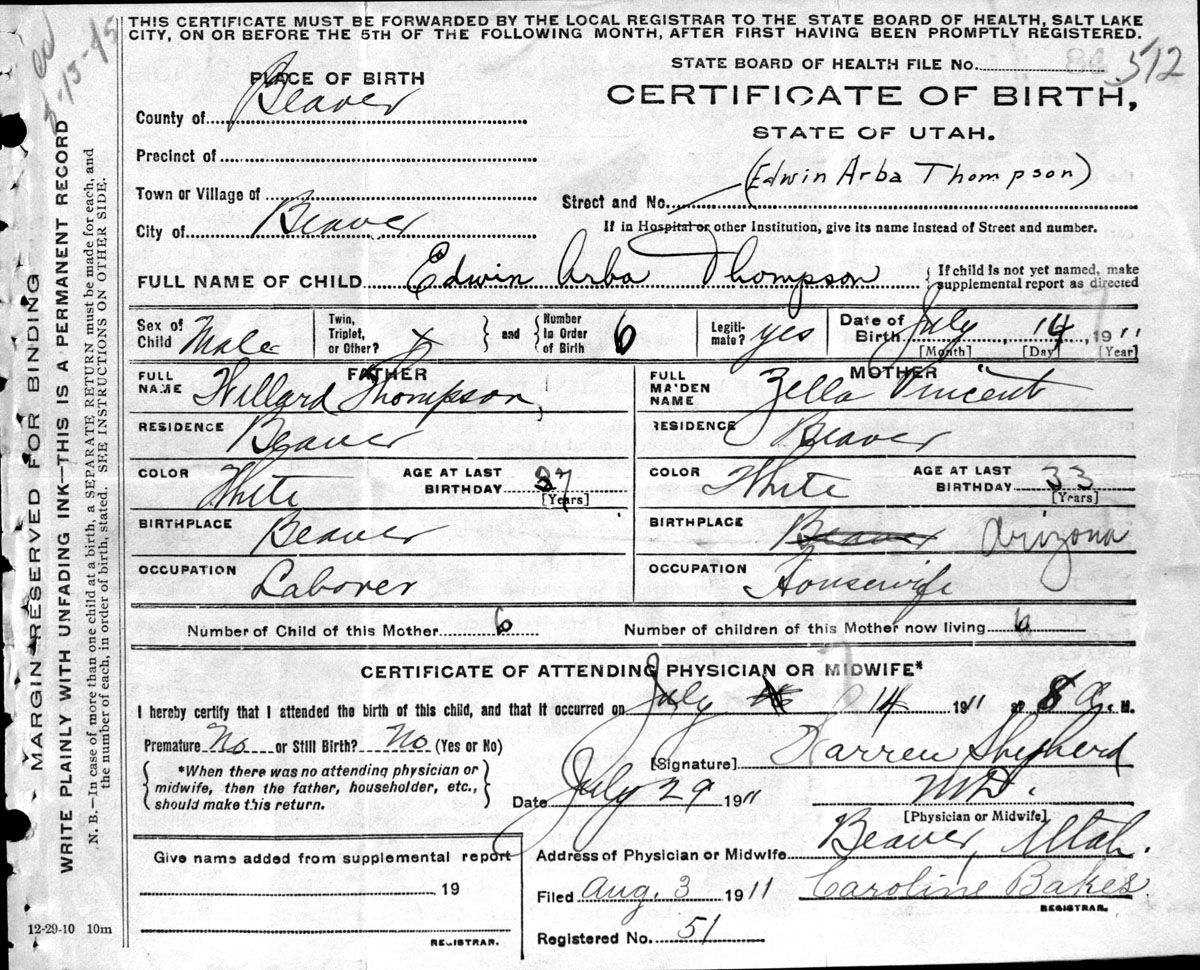 THIS CERTIFICATE MUST BE FORWARDED BY THE LOCAL REGISTRAR TO THE STATE BOARD OF HEALTH, SALT LAKE
CITY, ON OR BEFORE THE 5TH OF THE FOLLOWING MONTH, AFTER FIRST HAVING BEEN PROMPTLY REGISTERED.
STATE BOARD OF HEALTH FILE No. 512
PLACE OF BIRTH
CERTIFICATE OF BIRTH,
STATE OF UTAH.
County of Beaver
Precinct of
Town or Village of
(Edwin Arba Thompson)
Street and No.
City of Beaver
If in Hospital or other Institution, give its name instead of Street and number.
FULL NAME OF CHILD Edwin Arba Thompson
{If child is not yet named, make
supplemental report as directed
Sex of Child Male
Twin, Triplet, or Other?
and
Number In Order of Birth 6
Legitimate? yes
Date of Birth July 14, 1911
[Month] [Day] [Year]
FATHER
FULL NAME Willard Thompson
RESIDENCE Beaver
COLOR White
AGE AT LAST BIRTHDAY 37
[Years]
BIRTHPLACE Beaver
OCCUPATION Laborer
MOTHER
FULL MAIDEN NAME Zella Vincent
RESIDENCE Beaver
COLOR White
AGE AT LAST BIRTHDAY 33
[Years]
BIRTHPLACE Beaver Arizona
OCCUPATION Housewife
Number of Child of this Mother 6
Number of children of this Mother now living 6
CERTIFICATE OF ATTENDING PHYSICIAN OR MIDWIFE*
I hereby certify that I attended the birth of this child, and that it occurred on July 14 1911 at 8 a. M.
Premature No or Still Birth? No (Yes or No)
{*When there was no attending physician or
midwife, then the father, householder, etc.,
should make this return.}
[Signature] Warren Shepherd
M.D.
[Physician or Midwife]
Date July 29 1911
Address of Physician or Midwife Beaver, Utah.
Give name added from supplemental report
19
REGISTRAR.
Filed Aug. 3 1911
Caroline Bakes
REGISTRAR.
Registered No. 51
12-29-10 10m
MARGIN RESERVED FOR BINDING
WRITE PLAINLY WITH UNFADING INK—THIS IS A PERMANENT RECORD
N. B.—In case of more than one child at a birth, a SEPARATE RETURN must be made for each, and
the number of each, in order of birth, stated. SEE INSTRUCTIONS ON OTHER SIDE.